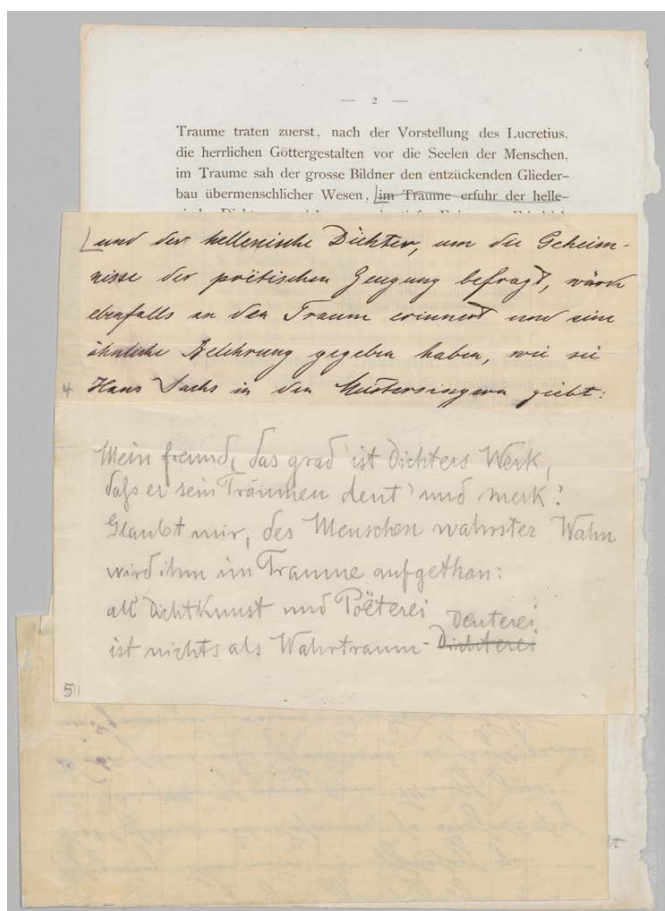 — 2 —
Traume traten zuerst, nach der Vorstellung des Lucretius,
die herrlichen Göttergestalten vor die Seelen der Menschen,
im Traume sah der grosse Bildner den entzückenden Glieder-
bau übermenschlicher Wesen, im Traume erfuhr der helle-
und der hellenische Dichter, um die Geheim-
nisse der poëtischen Zeugung befragt, würde
ebenfalls an den Traum erinnert und eine
ähnliche Belehrung gegeben haben, wie sie
4 Hans Sachs in den Meistersingern giebt:
Mein Freund, das grad' ist Dichters Werk,
daß er sein Träumen deut' und merk'.
Glaubt mir, des Menschen wahrster Wahn
wird ihm im Traume aufgethan:
all' Dichtkunst und Poëterei
Deuterei
ist nichts als Wahrtraum-Dichterei
5